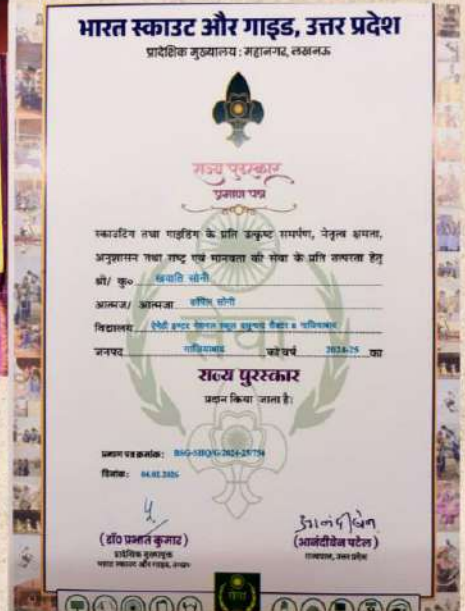 भारत स्काउट और गाइड, उत्तर प्रदेश
प्रादेशिक मुख्यालय : महानगर, लखनऊ
राज्य पुरस्कार
प्रमाण पत्र
स्काउटिंग तथा गाइडिंग के प्रति उत्कृष्ट समर्पण, नेतृत्व क्षमता,
अनुशासन तथा राष्ट्र एवं मानवता की सेवा के प्रति तत्परता हेतु
श्री/ कु० ख्याति सोनी
आत्मज/ आत्मजा कपिल सोनी
विद्यालय नेशनल स्कूल वसुन्धरा सैक्टर 8 गाजियाबाद
जनपद गाजियाबाद को वर्ष 2024-25 का
राज्य पुरस्कार
प्रदान किया जाता है।
प्रमाण पत्र क्रमांक: BSG-SHQ/G/2024-25/754
दिनांक: 04.01.2026
(डॉ० प्रभात कुमार)
प्रादेशिक मुख्यायुक्त
भारत स्काउट और गाइड, उ०प्र०
आनंदीबेन
(आनंदीबेन पटेल)
राज्यपाल, उत्तर प्रदेश
सेवा